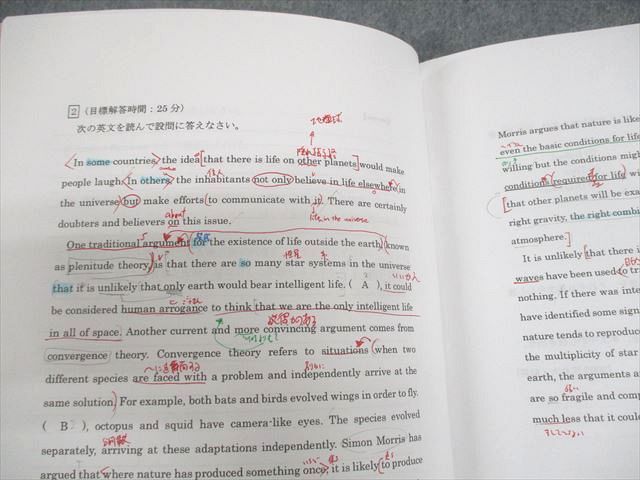 2 (目標解答時間：25分)
次の英文を読んで設問に答えなさい。
In some countries, the idea that there is life on other planets would make
people laugh. In others, the inhabitants not only believe in life elsewhere in
the universe, but make efforts to communicate with it. There are certainly
doubters and believers on this issue.
about
life in the universe
One traditional argument for the existence of life outside the earth, known
as plenitude theory, is that there are so many star systems in the universe
恒星
that it is unlikely that only earth would bear intelligent life. ( A ), it could
be considered human arrogance to think that we are the only intelligent life
説得力のある
in all of space. Another current and more convincing argument comes from
convergence theory. Convergence theory refers to situations when two
different species are faced with a problem and independently arrive at the
same solution. For example, both bats and birds evolved wings in order to fly.
( B ), octopus and squid have camera-like eyes. The species evolved
separately, arriving at these adaptations independently. Simon Morris has
argued that where nature has produced something once, it is likely to produce
Morris argues that nature is like
even the basic conditions for life
willing but the conditions migh
conditions required for life wi
that other planets will be exa
right gravity, the right combin
atmosphere.
It is unlikely that there i
waves have been used to tr
nothing. If there was inte
have identified some signa
nature tends to reproduc
the multiplicity of star
earth, the arguments a
are so fragile and comp
much less that it could